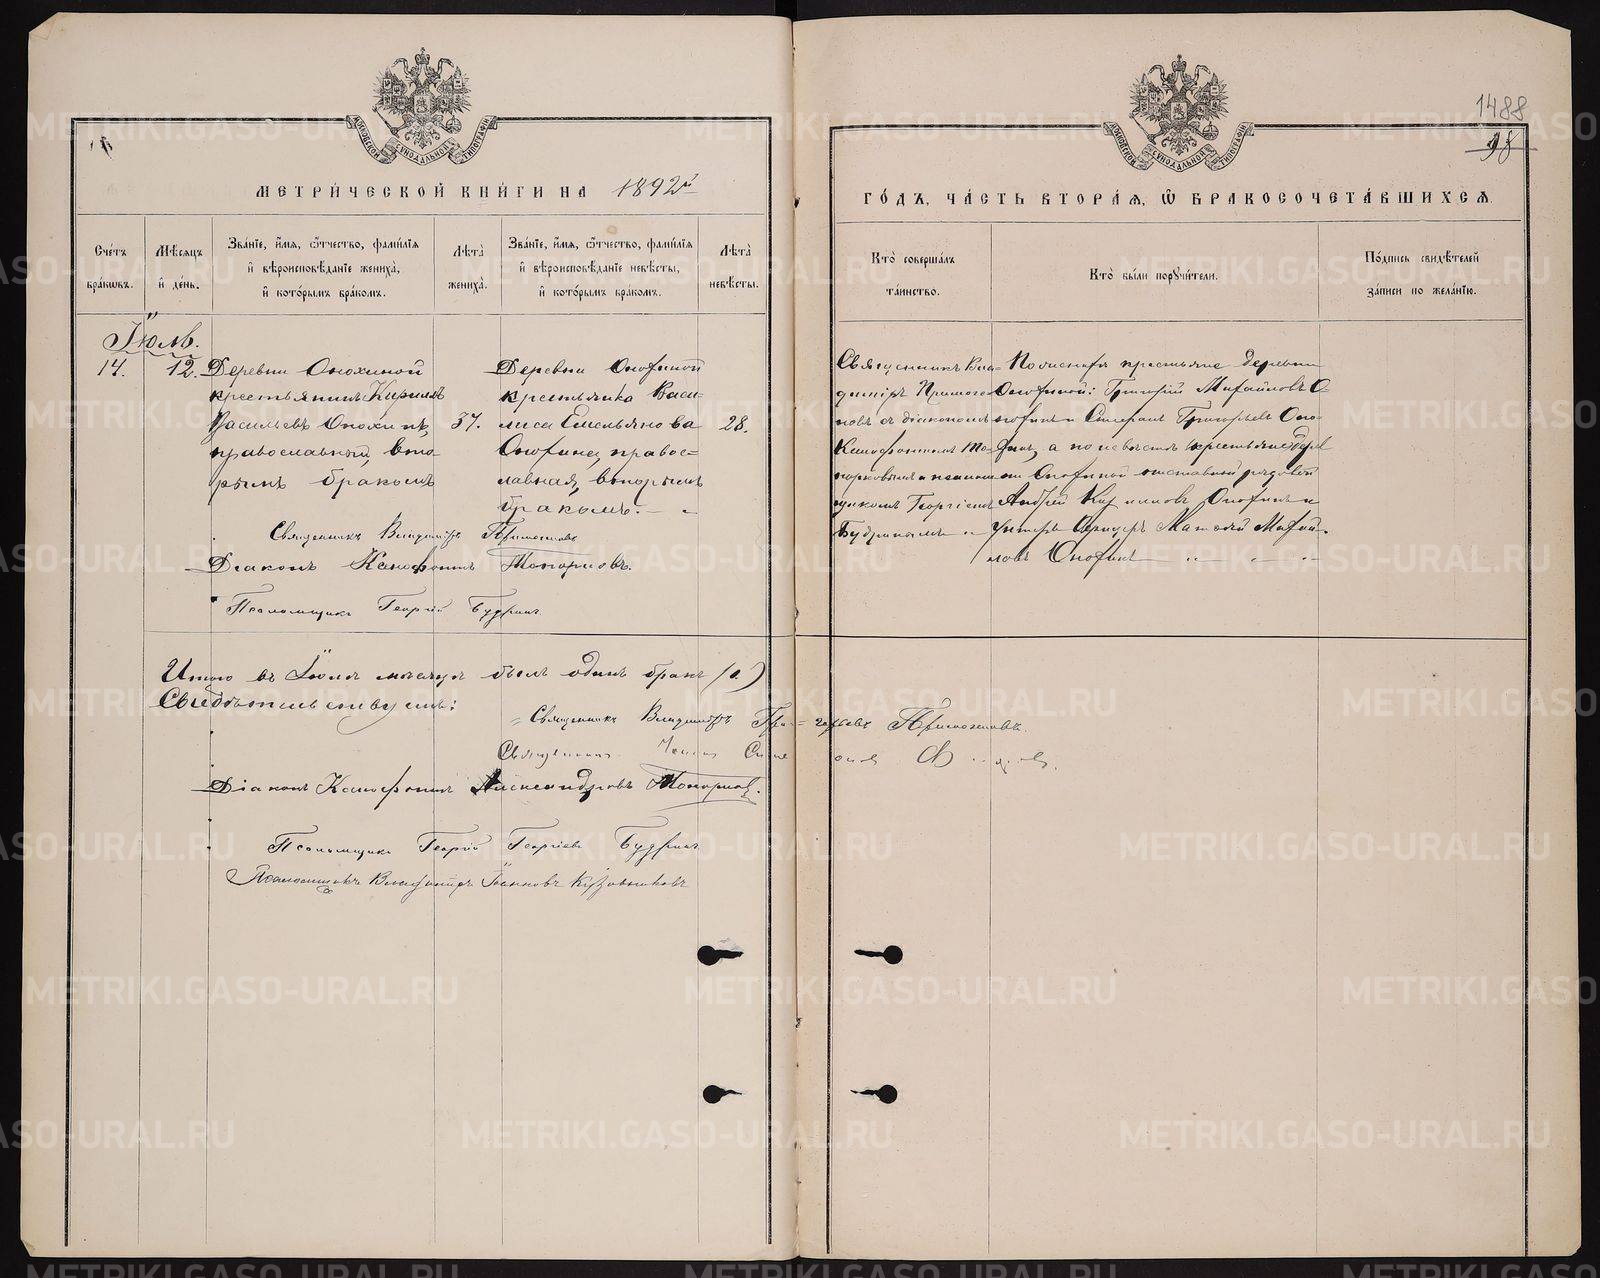 1488
98
МОСКОВСКОЙ СѴНОДАЛЬНОЙ ТИПОГРАФІИ
МЕТРИ́ЧЕСКОЙ КНИ́ГИ НА 1892й
Сче́тъ бра́кωвъ.
Мѣ́сяцъ и҆ де́нь.
Зва́нїе, и҆́мѧ, ѻ҆́тчество, фами́лїѧ и҆ вѣроисповѣ́данїе жениха̀, и҆ кото́рымъ бра́комъ.
Лѣта̀ жениха̀.
Зва́нїе, и҆́мѧ, ѻ҆́тчество, фами́лїѧ и҆ вѣроисповѣ́данїе невѣ́сты, и҆ кото́рымъ бра́комъ.
Лѣта̀ невѣ́сты.
Іюль.
14.
12.
Деревни Онохиной
крестьянинъ Кириллъ
Васильевъ Онохинъ,
православный, вто-
рымъ бракомъ
37.
Деревни Онохиной
крестьянка Васи-
лиса Емельянова
Онохина, правос=
лавная, вторымъ
бракомъ.
28.
Священникъ Владиміръ
Діаконъ Ксенофонтъ Топорковъ.
Псаломщикъ Георгій Будринъ.
Итого въ Іюлѣ мѣсяцѣ былъ одинъ бракъ (1.)
Свидѣтельствуемъ:
Священникъ Владиміръ
Священникъ
Діаконъ Ксенофонтъ Александровъ Топорковъ.
Псаломщикъ Георгій Георгіевъ Будринъ
Псаломщикъ Владиміръ Іоанновъ
МОСКОВСКОЙ СѴНОДАЛЬНОЙ ТИПОГРАФІИ
ГО́ДЪ, ЧА́СТЬ ВТОРА́Ѧ, Ѽ БРАКОСОЧЕТА́ВШИХСѦ.
Кто̀ соверша́лъ та́инство.
Кто̀ бы́ли порꙋчи́тели.
По́дпись свидѣ́телей за́писи по жела́нїю.
Священникъ Вла=
диміръ
новъ съ діакономъ
Ксенофонтомъ То-
порковымъ и псалом-
щикомъ Георгіемъ
Будринымъ
По женихѣ крестьяне деревни
Онохиной: Григорій Михайловъ О-
нохинъ и Григорьевъ Оно-
хинъ, а по невѣстѣ крестьяне дерев
ни Онохиной отставной рядовой
Андрей Кирилловъ Онохинъ и
унтеръ офицеръ Матвѣй Михай-
ловъ Онохинъ
METRIKI.GASO-URAL.RU